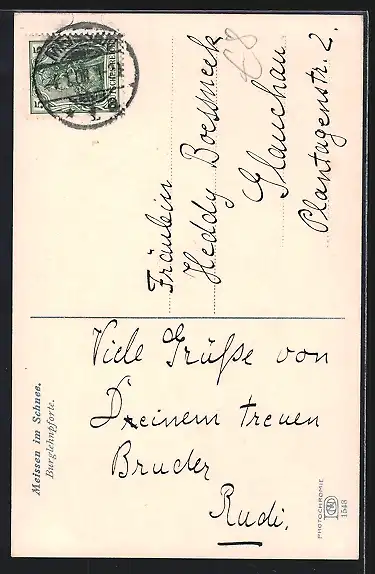 Fräulein
Heddy Boessneck
Glauchau
Plantagenstr. 2.
€8
Viele Grüße von
Deinem treuen
Bruder
Rudi.
Meissen im Schnee.
Burglehnpforte.
PHOTOCHROMIE
1548